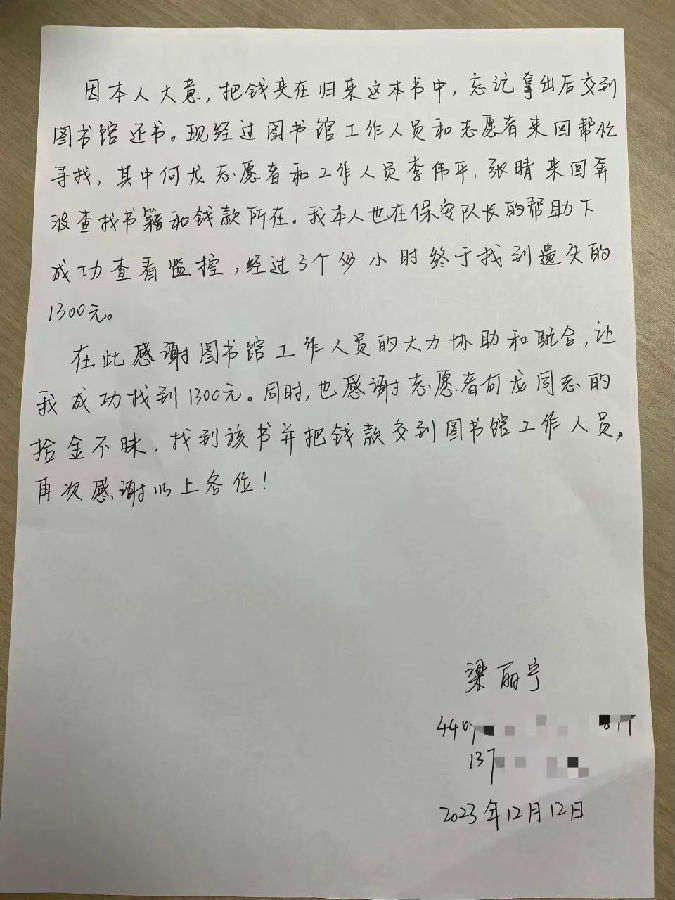 因本人大意，把钱夹在归来这本书中，忘记拿出后交到
图书馆还书。现经过图书馆工作人员和志愿者来回帮忙
寻找，其中何龙志愿者和工作人员李伟平、张晴来回奔
波查找书籍和钱款所在。我本人也在保安队长的帮助下
成功查看监控，经过3个多小时终于找到遗失的
1300元。
在此感谢图书馆工作人员的大力协助和配合，让
我成功找到1300元。同时，也感谢志愿者何龙同志的
拾金不昧，找到该书并把钱款交到图书馆工作人员，
再次感谢以上各位！
梁丽宁
440
137
2023年12月12日